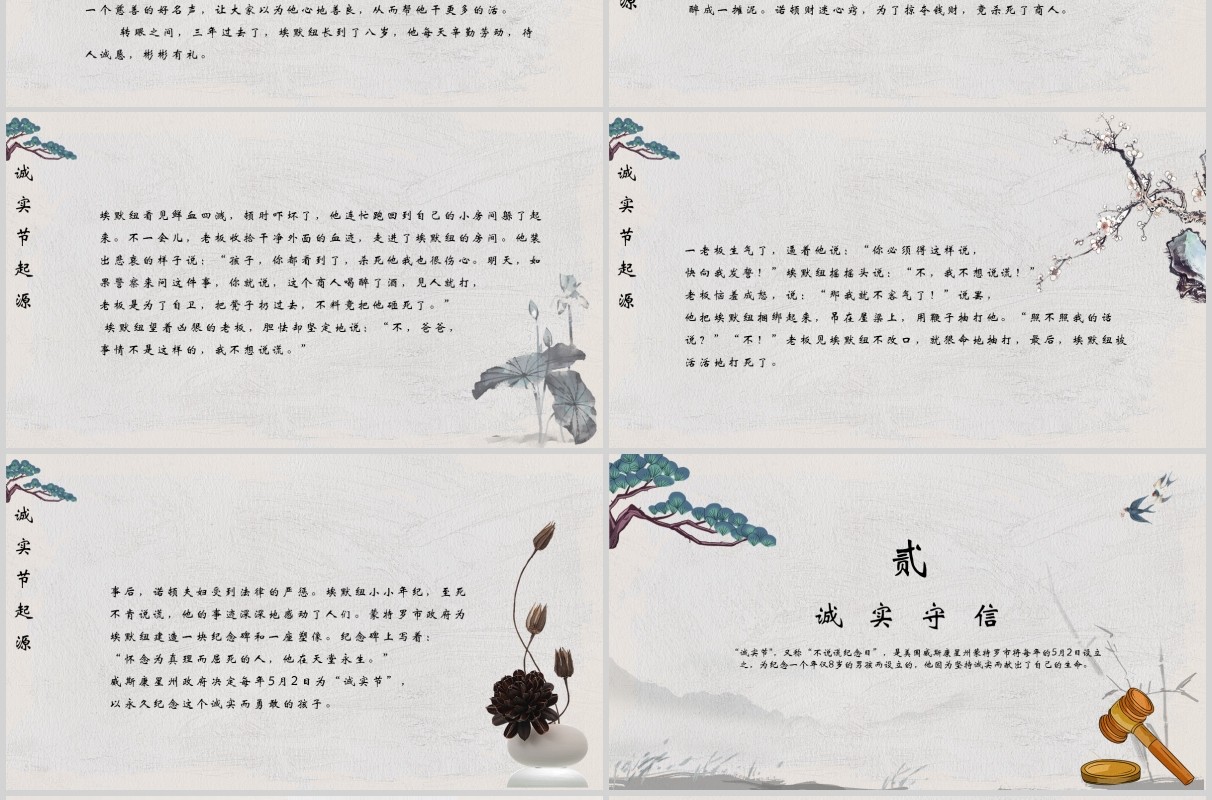 一个慈善的好名声，让大家以为他心地善良，从而帮他干更多的活。
转眼之间，三年过去了，埃默纽长到了八岁，他每天辛勤劳动，待
人诚恳，彬彬有礼。
源
醉成一摊泥。诺顿财迷心窍，为了掠夺钱财，竟杀死了商人。
诚
实
节
起
源
埃默纽看见鲜血四溅，顿时吓坏了，他连忙跑回到自己的小房间躲了起
来。不一会儿，老板收拾干净外面的血迹，走进了埃默纽的房间。他装
出悲哀的样子说：“孩子，你都看到了，杀死他我也很伤心。明天，如
果警察来问这件事，你就说，这个商人喝醉了酒，见人就打，
老板是为了自卫，把凳子扔过去，不料竟把他砸死了。”
埃默纽望着凶狠的老板，胆怯却坚定地说：“不，爸爸，
事情不是这样的，我不想说谎。”
诚
实
节
起
源
一老板生气了，逼着他说：“你必须得这样说，
快向我发誓！”埃默纽摇摇头说：“不，我不想说谎！”
老板恼羞成怒，说：“那我就不客气了！”说罢，
他把埃默纽捆绑起来，吊在屋梁上，用鞭子抽打他。“照不照我的话
说？”“不！”老板见埃默纽不改口，就狠命地抽打，最后，埃默纽被
活活地打死了。
诚
实
节
起
源
事后，诺顿夫妇受到法律的严惩。埃默纽小小年纪，至死
不肯说谎，他的事迹深深地感动了人们。蒙特罗市政府为
埃默纽建造一块纪念碑和一座塑像。纪念碑上写着：
“怀念为真理而屈死的人，他在天堂永生。”
威斯康星州政府决定每年5月2日为“诚实节”，
以永久纪念这个诚实而勇敢的孩子。
贰
诚实守信
“诚实节”，又称“不说谎纪念日”，是美国威斯康星州蒙特罗市将每年的5月2日设立
之，为纪念一个年仅8岁的男孩而设立的，他因为坚持诚实而献出了自己的生命。